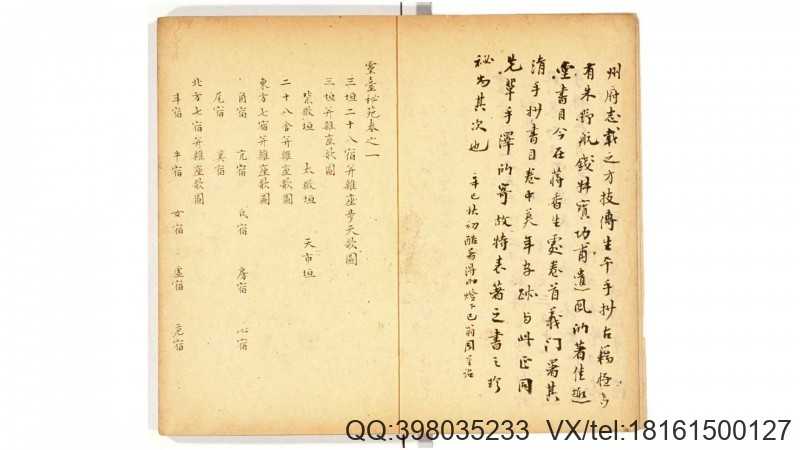 州府志載之方技傳生平手抄古籍極多
有朱野航錢牧寶功甫遺風的著佳趣
堂書目今在蔣香生處卷首義門署其
清手抄書目卷中每年字跡与此正同
先輩手澤的寄故特表著之書之珍
秘尚其次也
辛巳秋初醋香得此燈下巳翁周星詒
靈臺秘苑卷之一
三垣二十八宿并雜座步天歌圖
三垣并雜座歌圖
紫微垣 太微垣 天市垣
二十八舍并雜座歌圖
東方七宿并雜座歌圖
角宿 亢宿 氐宿 房宿 心宿
尾宿 箕宿
北方七宿并雜座歌圖
斗宿 牛宿 女宿 虛宿 危宿
QQ:398035233 VX/tel:18161500127